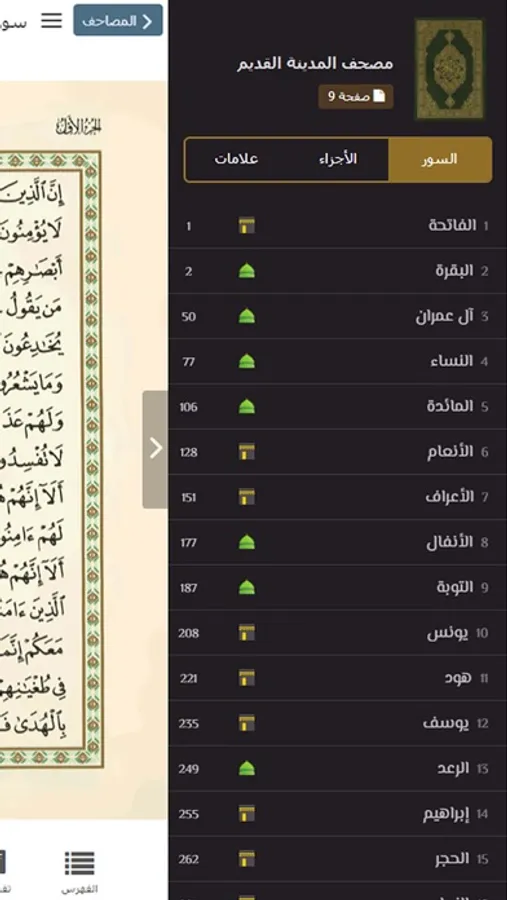 مصحف المدينة القديم
صفحة 9
السور
الأجزاء
علامات
1 الفاتحة 1
2 البقرة 2
3 آل عمران 50
4 النساء 77
5 المائدة 106
6 الأنعام 128
7 الأعراف 151
8 الأنفال 177
9 التوبة 187
10 يونس 208
11 هود 221
12 يوسف 235
13 الرعد 249
14 إبراهيم 255
15 الحجر 262
المصاحف
الجزء الأول
إِنَّ ٱلَّذِينَ
لَا يُؤْمِنُونَ
أَبْصَٰرِهِمْ
مَن يَقُولُ
يُخَٰدِعُونَ
وَمَا يَشْعُرُو
وَلَهُمْ عَذَ
لَا تُفْسِدُو
أَلَآ إِنَّهُمْ هُ
لَهُمْ ءَامِنُو
أَلَآ إِنَّهُمْ هُ
ٱلَّذِينَ ءَامَنُ
مَعَكُمْ إِنَّمَا
فِي طُغْيَٰنِهِمْ
بِٱلْهُدَىٰ فَ
الفهرس